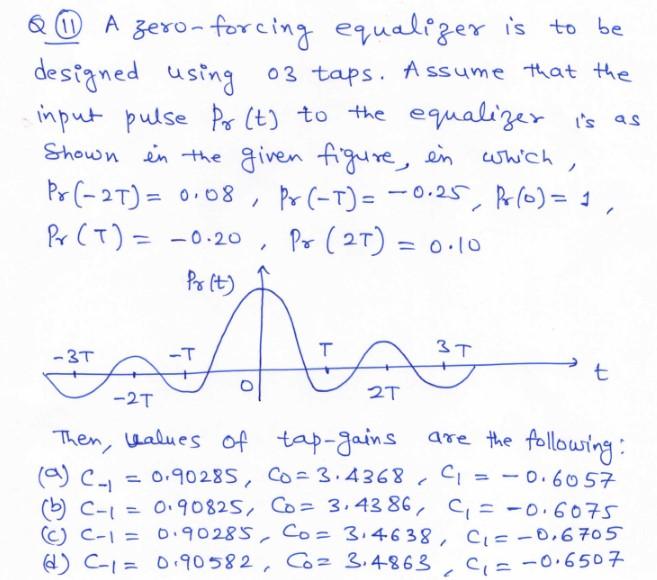 Q ⑪ A zero-forcing equalizer is to be
designed using 03 taps. Assume that the
input pulse Pr(t) to the equalizer is as
Shown in the given figure, in which,
Pr(-2T) = 0.08, Pr(-T) = -0.25, Pr(0) = 1,
Pr(T) = -0.20, Pr(2T) = 0.10
Pr(t)
-3T -T T 3T
t
-2T 0 2T
Then, values of tap-gains are the following:
(a) C-1 = 0.90285, C0 = 3.4368, C1 = -0.6057
(b) C-1 = 0.90825, C0 = 3.4386, C1 = -0.6075
(c) C-1 = 0.90285, C0 = 3.4638, C1 = -0.6705
(d) C-1 = 0.90582, C0 = 3.4863, C1 = -0.6507